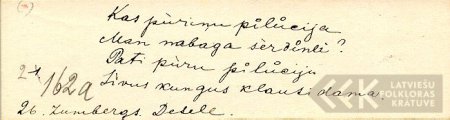 Kas pūriņu pilūcija
Man nabaga sērdīnli?
Pati pūru pilūciju
Sīvus kungus klausīdama.
2x 1629
26. Zumbergs. Desele.
LATVIEŠU
FOLKLORAS
KRĀTUVE